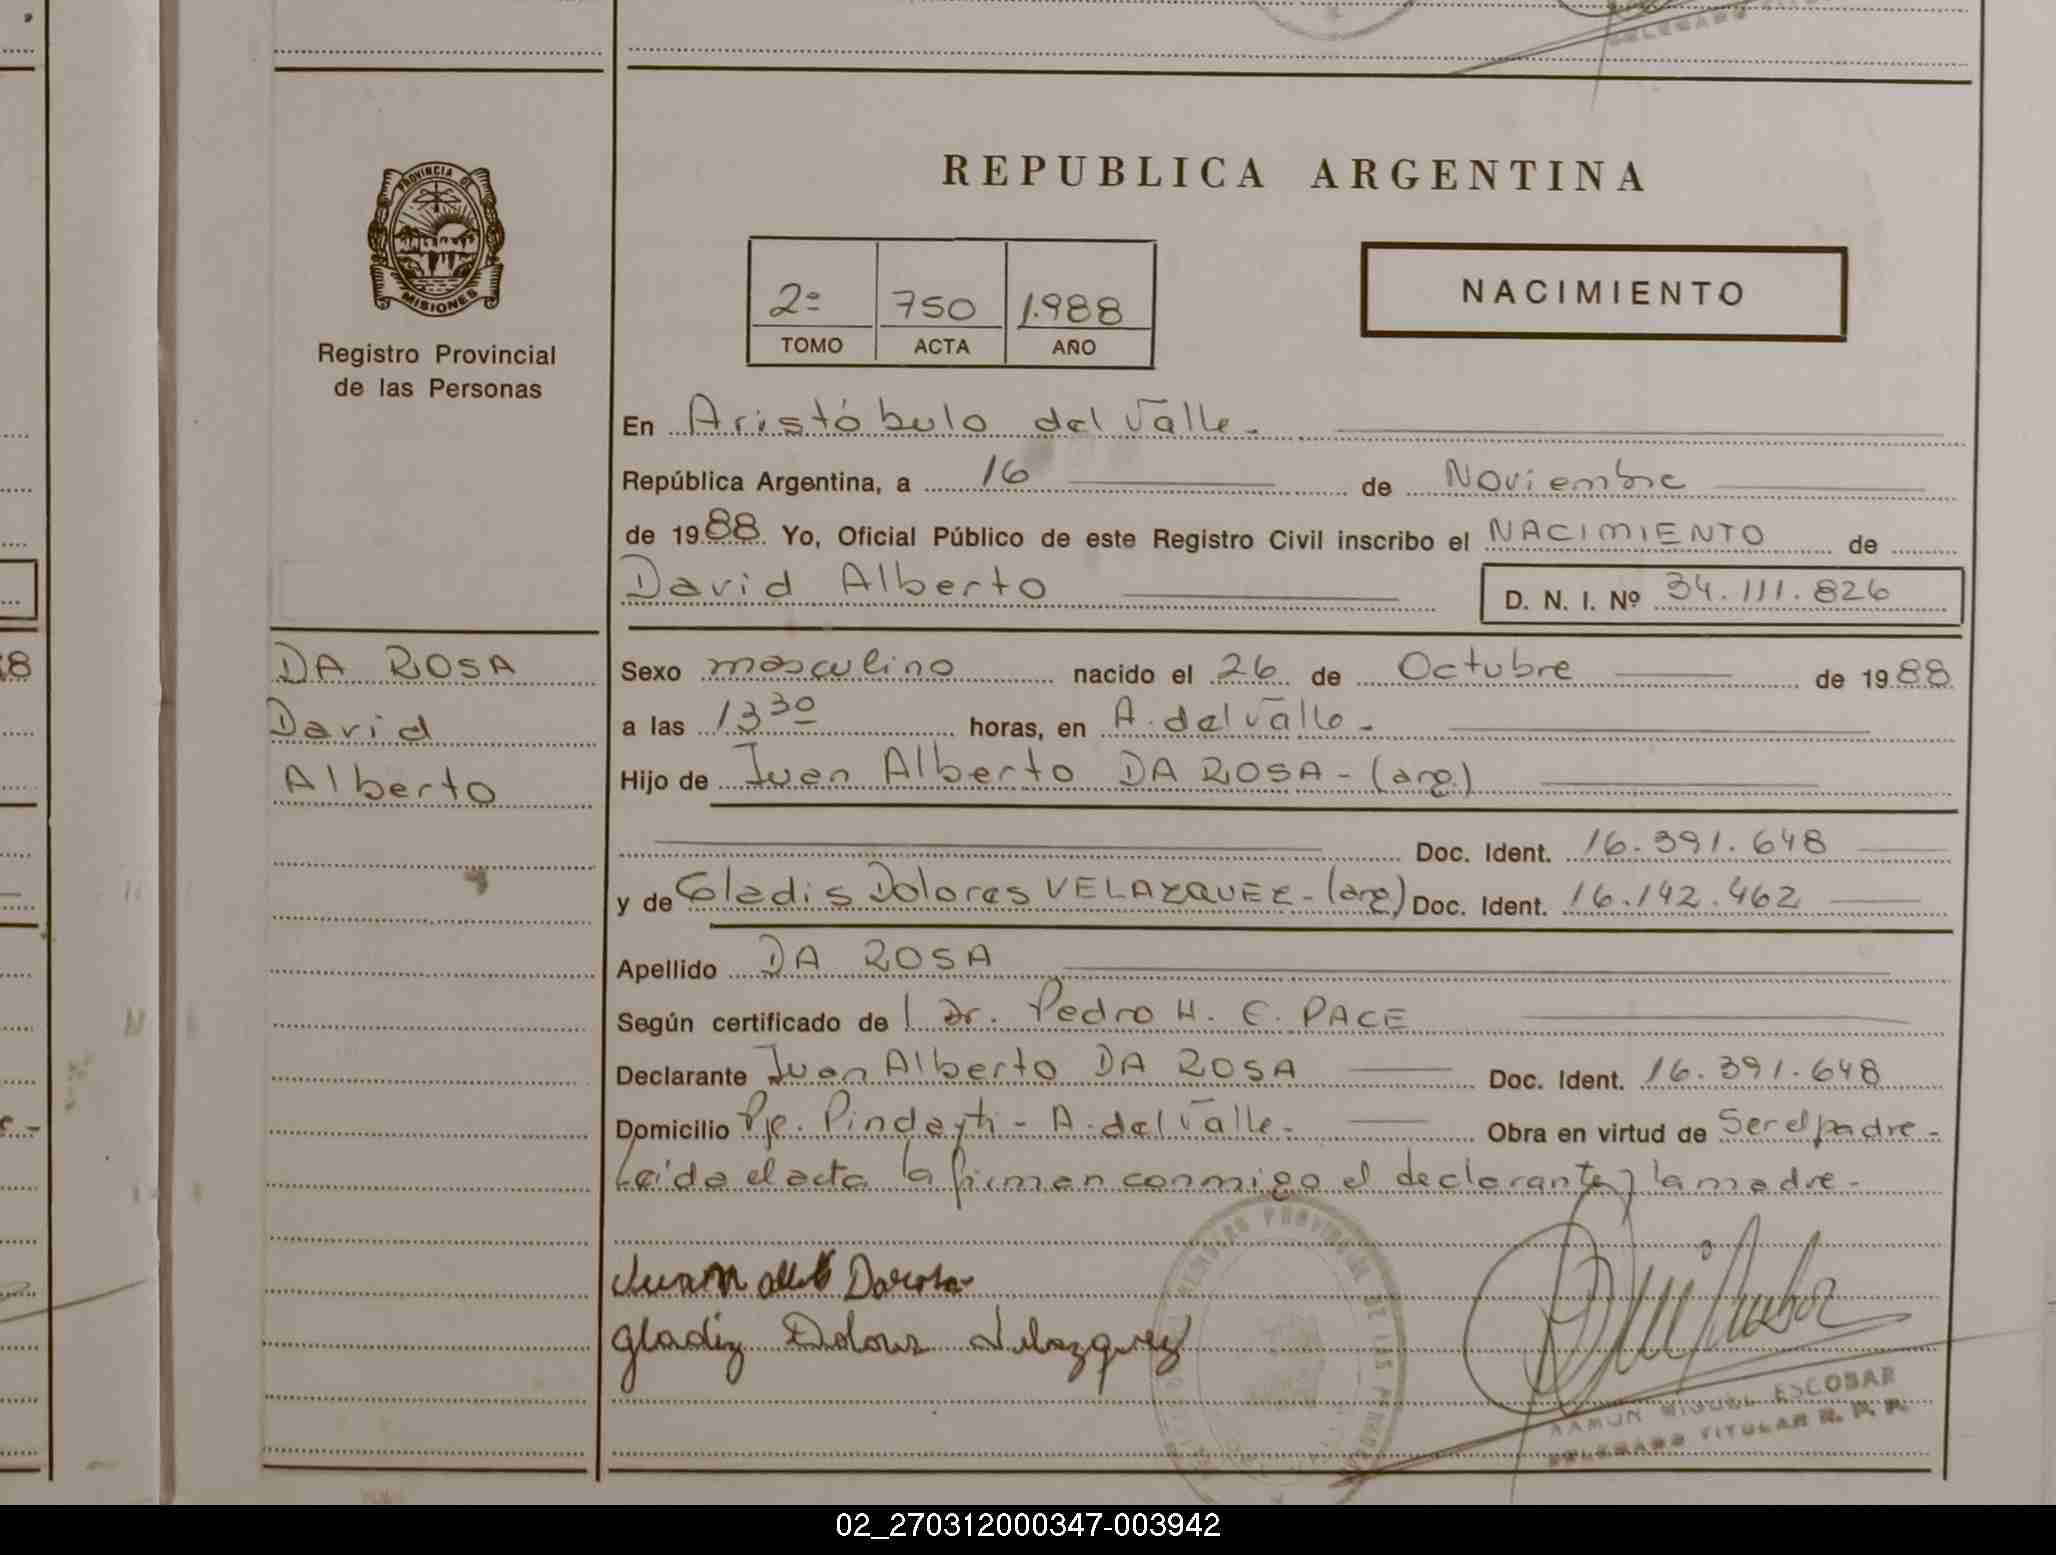 DELEGADO TITULAR
PROVINCIA DE
MISIONES
Registro Provincial
de las Personas
REPUBLICA ARGENTINA
NACIMIENTO
2º 750 1.988
TOMO ACTA AÑO
En Aristóbulo del Valle.-
República Argentina, a 16 de Noviembre
de 1988 Yo, Oficial Público de este Registro Civil inscribo el NACIMIENTO de
David Alberto D. N. I. Nº 34.111.826
DA ROSA
David
Alberto
Sexo masculino nacido el 26 de Octubre de 1988
a las 13 30 horas, en A. del Valle.-
Hijo de Juan Alberto DA ROSA - (arg.)
Doc. Ident. 16.391.648
y de Gladis Dolores VELAZQUEZ - (arg.) Doc. Ident. 16.142.462
Apellido DA ROSA
Según certificado de l Dr. Pedro H. E. PACE
Declarante Juan Alberto DA ROSA Doc. Ident. 16.391.648
Domicilio Pje. Pindayti - A. del Valle.- Obra en virtud de Ser el padre -
Leída el acta la firman conmigo el declarante y la madre -
Juan Darosa
Gladiz Dolores Velazquez
REGISTRO PROVINCIAL DE LAS PERSONAS
RAMON MIGUEL ESCOBAR
DELEGADO TITULAR R. P. P.
02_270312000347-003942